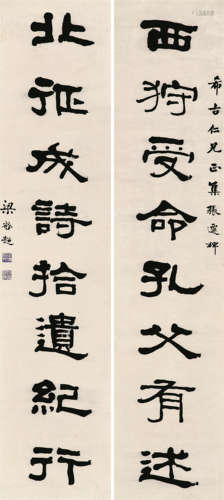 希古仁兄正集張遷碑
西狩受命孔父有述
北征成詩拾遺紀行
梁啟超